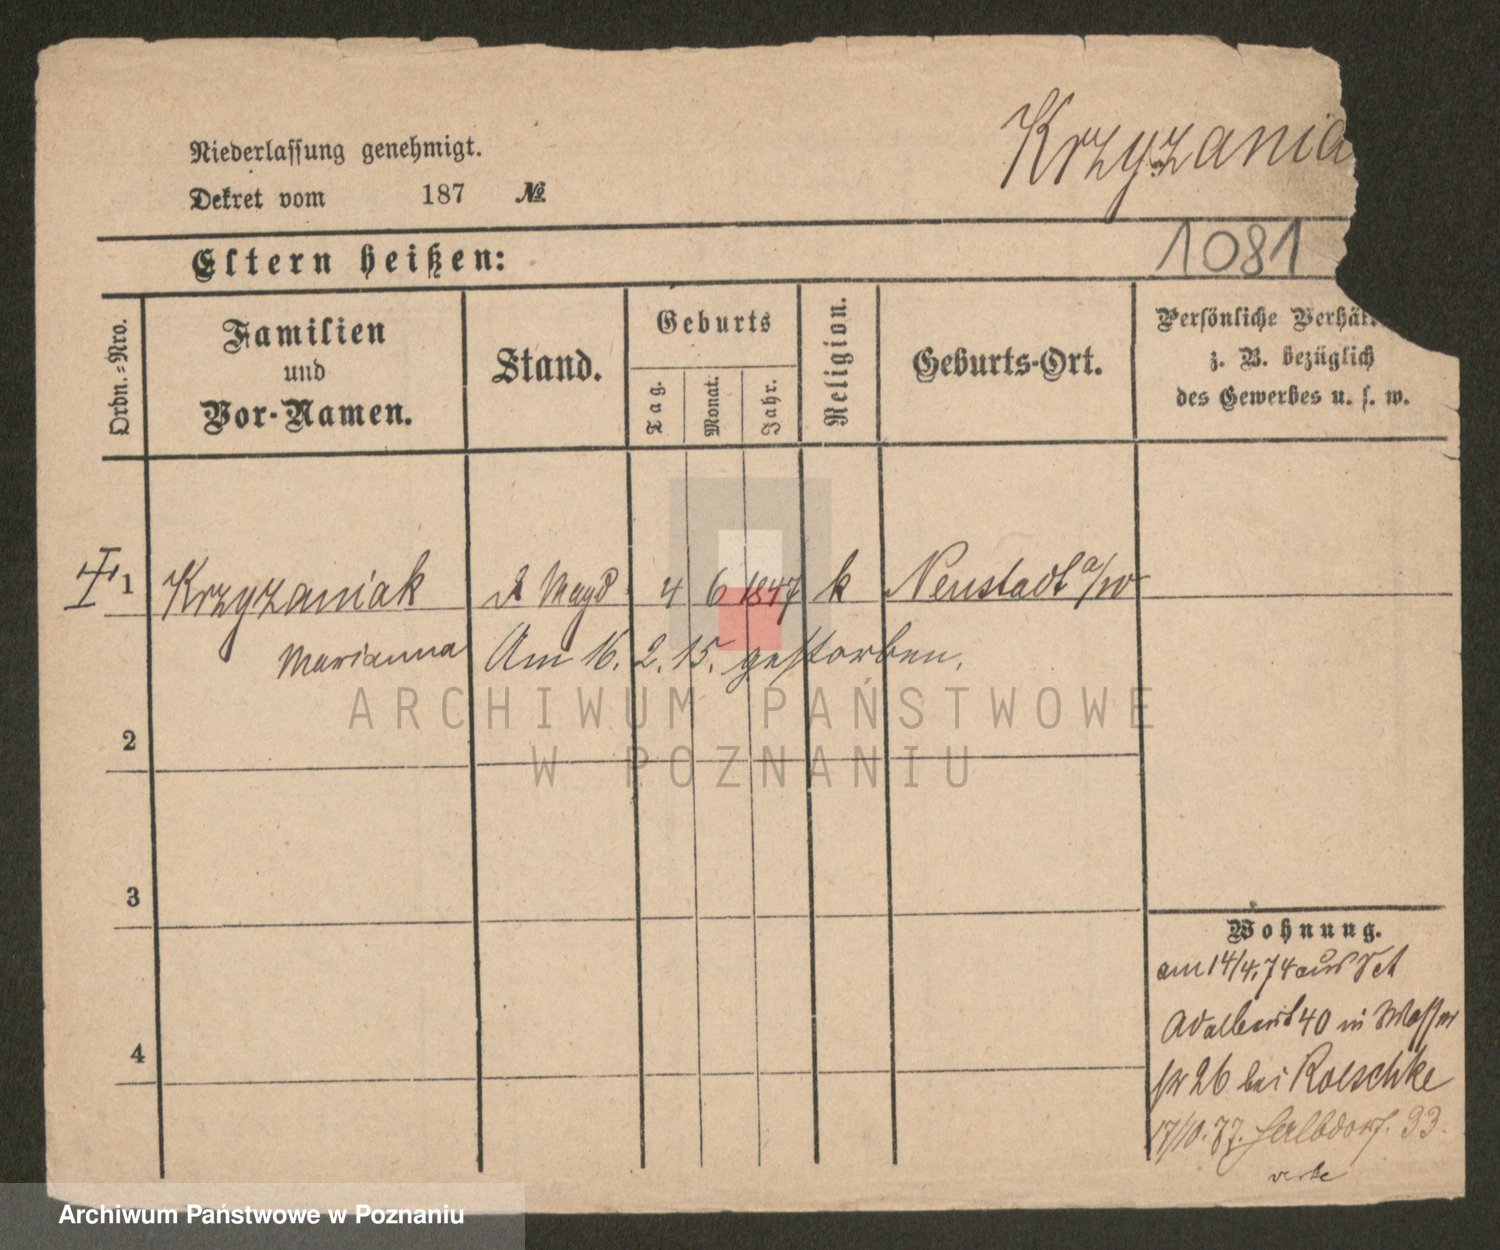 Krzyzania
Niederlassung genehmigt.
Dekret vom 187 №
1081
Eltern heißen:
Ordn.=Nro.
Familien
und
Vor-Namen.
Stand.
Geburts
Tag.
Monat.
Jahr.
Religion.
Geburts-Ort.
Persönliche Verhäl
z. B. bezüglich
des Gewerbes u. s. w.
1 Krzyzaniak d Magd 4 6 1847 k Neustadt a/W
Marianna Am 16. 2. 15. gestorben.
2
3
4
Wohnung.
am 14/4. 74 aus Sct
Adalbert 40 in Wasser
str 26 bei Roeschke
17/10. 77. Halbdorf. 33.
ARCHIWUM PAŃSTWOWE
W POZNANIU
Archiwum Państwowe w Poznaniu